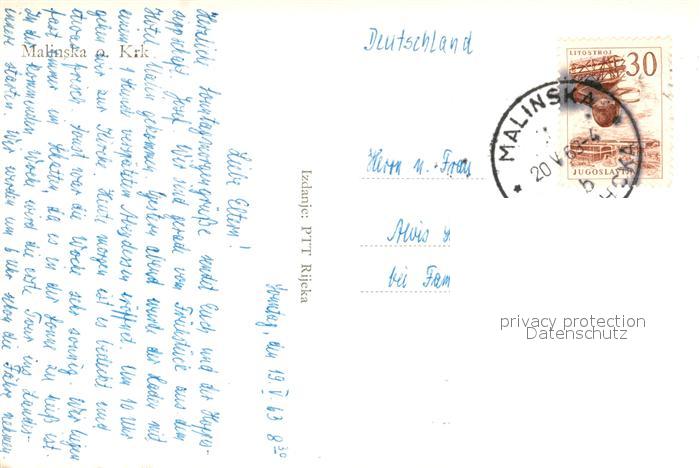 Malinska o. Krk
Deutschland
LITOSTROJ
30
JUGOSLAVIJA
MALINSKA
20 V 63-4
b
Herrn u. Frau
Alois
bei Fam
Izdanje: PTT Rijeka
privacy protection
Datenschutz
Sonntag, den 19 V 63 8 30
Liebe Eltern!
Herzliche Sonntagmorgengrüße sendet Euch und der
Josef. Wir sind gerade vom Frühstück aus dem
Hotel Malin gekommen. Gestern abend wurde der Laden mit
einem 1 Stunde verspäteten Abendessen eröffnet. Um 10 Uhr
gehen wir zur Kirche. Heut morgen ist es bewölkt und
etwas frisch, sonst war die Woche sehr sonnig. Wir liegen
fast immer im Schatten, da es in der Sonne zu heiß ist.
In der kommenden Woche wird die erste Tour ins Landes-
innere starten. Wir wollen um 6 Uhr schon die Fähre nehmen.